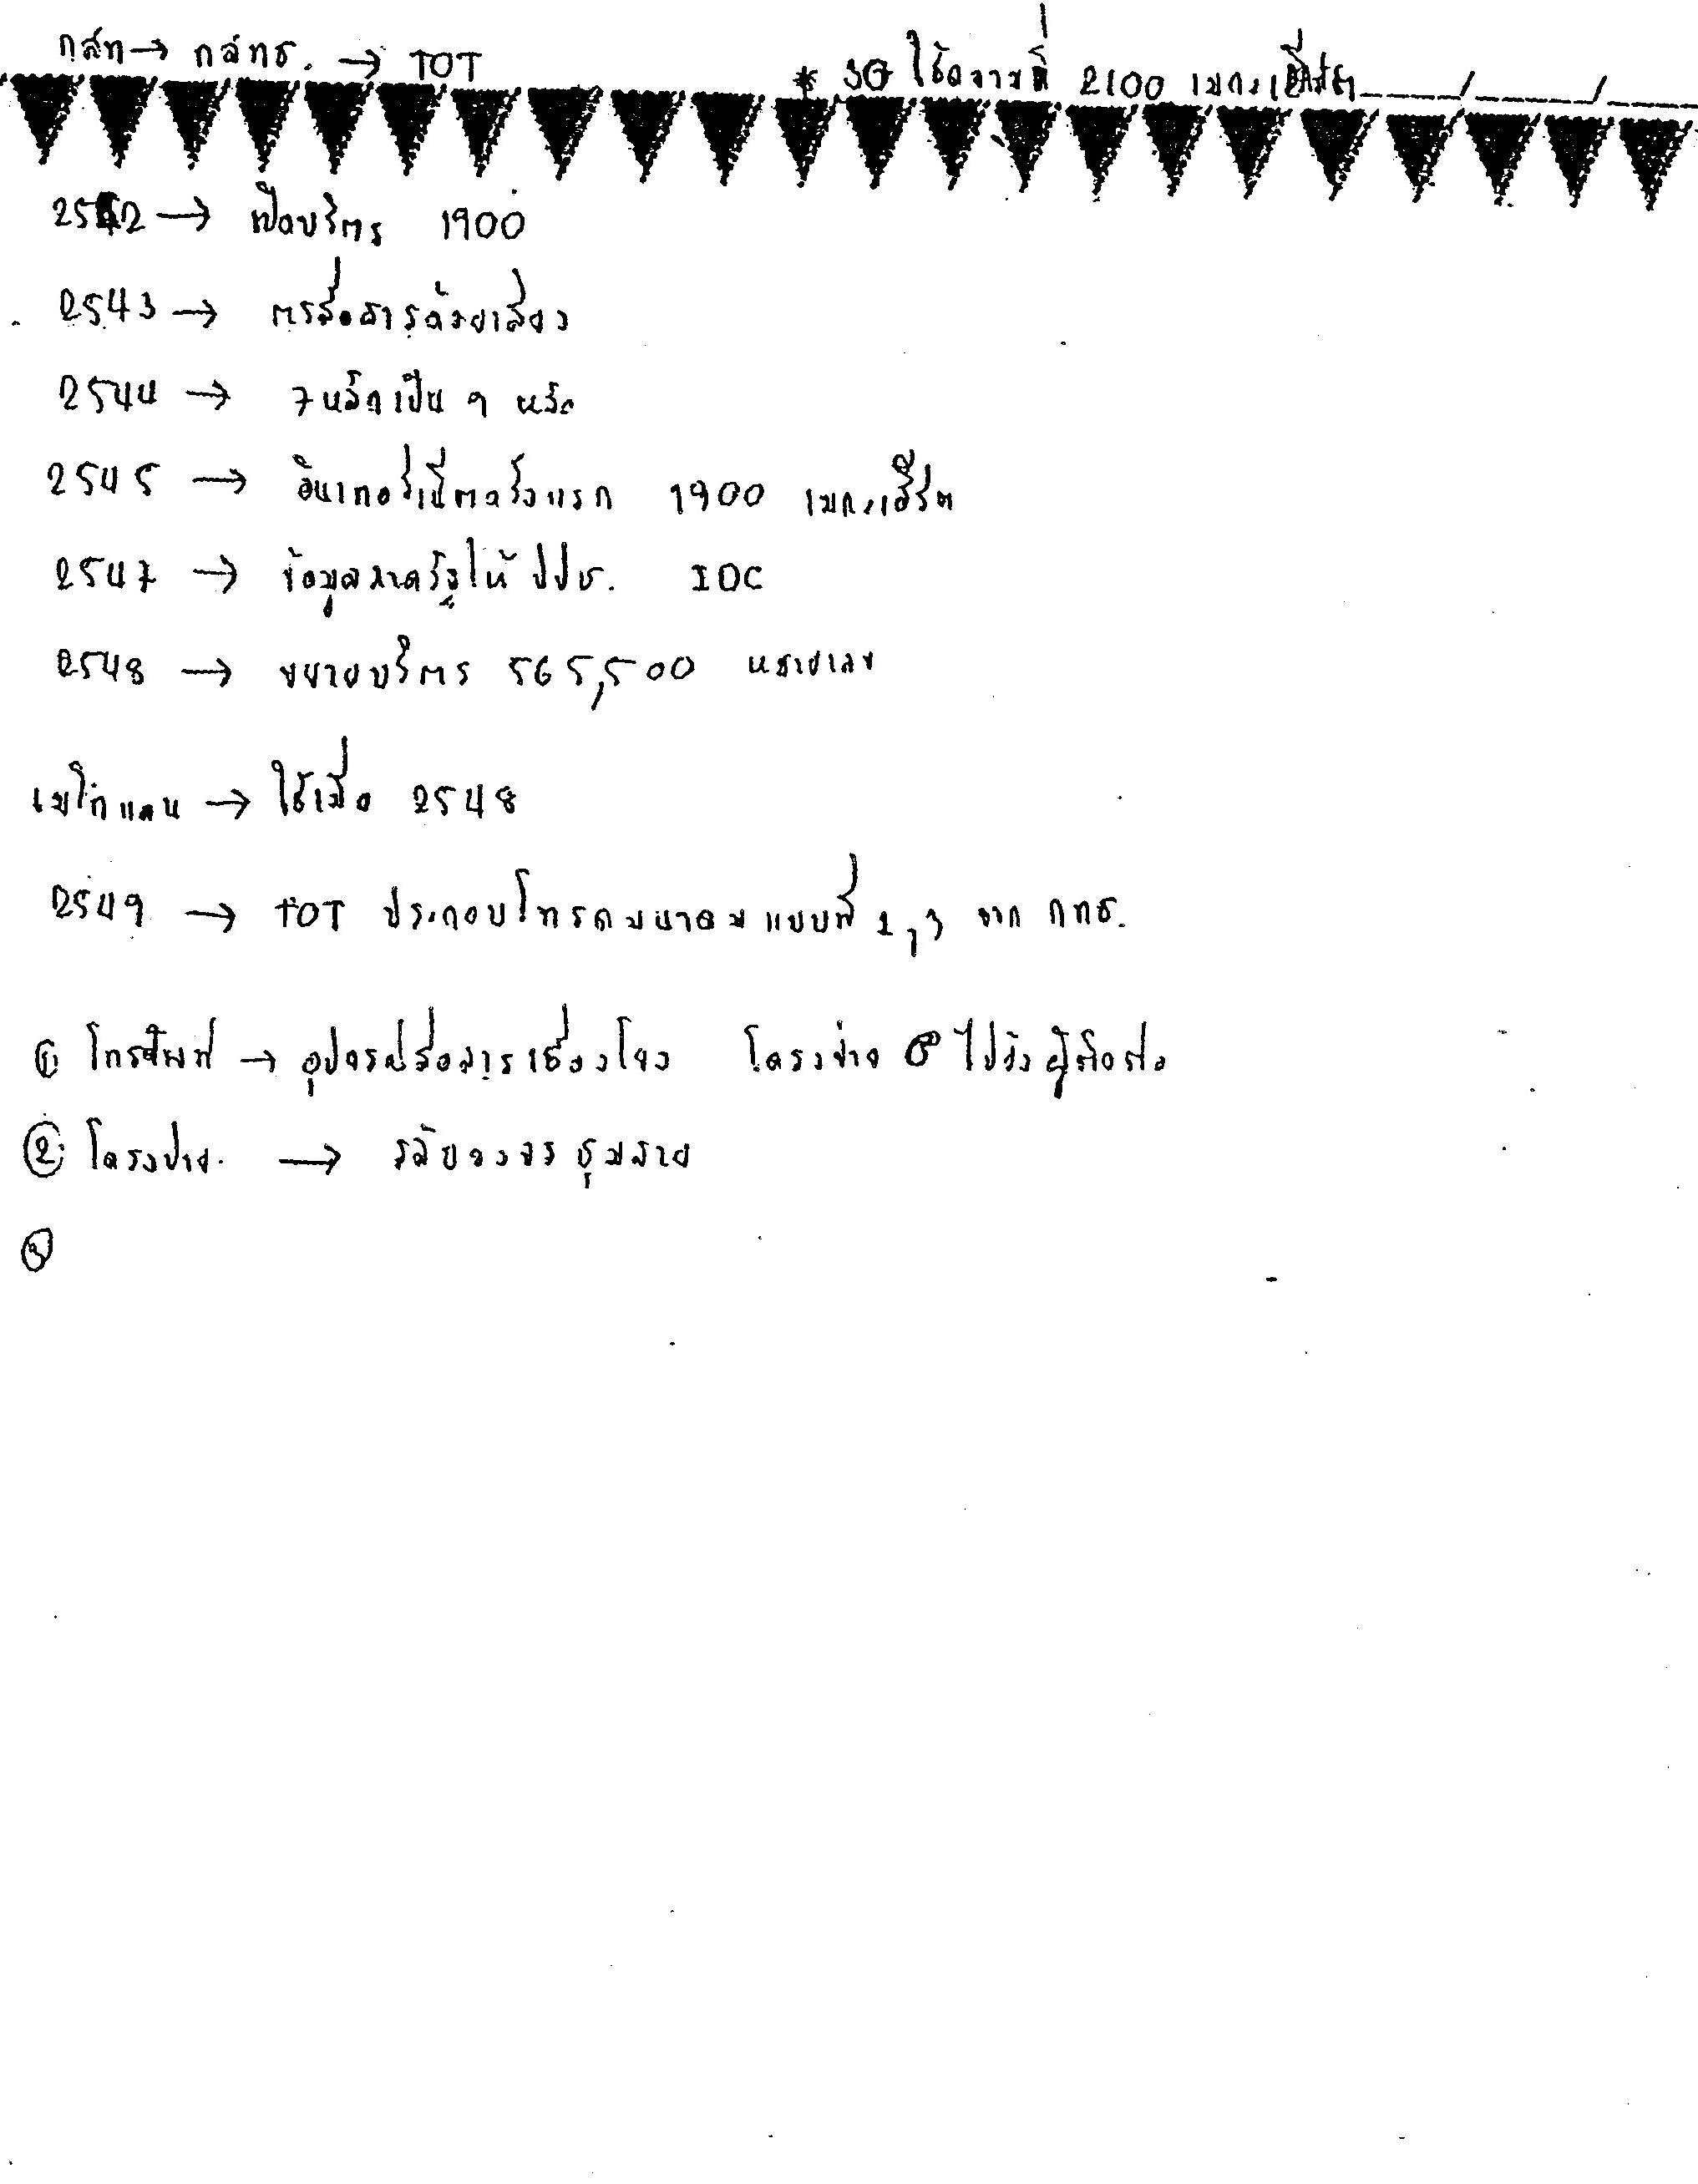 กสท → กสทช. → TOT
* 3G ใช้ความที่ 2100 เมกะเฮิร์ต
2542 → เปิดบริการ 1900
2543 → การสื่อสารด้วยเสียง
2544 → 7 หลักเป็น 9 หลัก
2545 → อินเทอร์เน็ตครั้งแรก 1900 เมกะเฮิร์ต
2547 → ข้อมูลภาครัฐให้ ปปช. IDC
2548 → ขยายบริการ 565,500 หมายเลข
เมโทแลน → ใช้เมื่อ 2548
2549 → TOT ประกอบโทรคมนาคมแบบที่ 1,3 จาก กทช.
① โทรศัพท์ → อุปกรณ์สื่อสารเชื่อมโยง โครงข่าย ไปยังผู้ติดต่อ
② โครงข่าย → สลับวงจร ชุมสาย
③